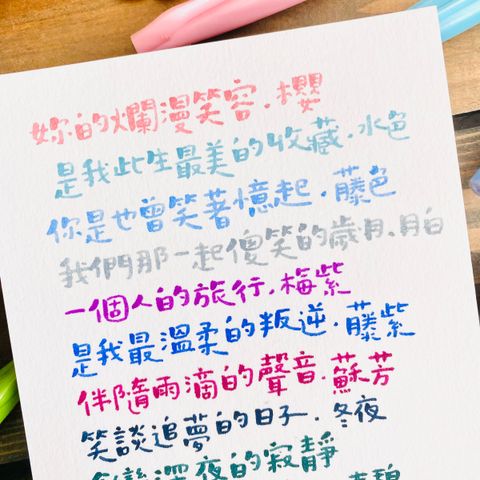 妳的爛漫笑容.櫻
是我此生最美的收藏.水色
你是也曾笑著憶起.藤色
我們那一起傻笑的歲月.月白
一個人的旅行.梅紫
是我最溫柔的叛逆.藤紫
伴隨雨滴的聲音.蘇芳
笑談追夢的日子.冬夜
深夜的寂靜
碧